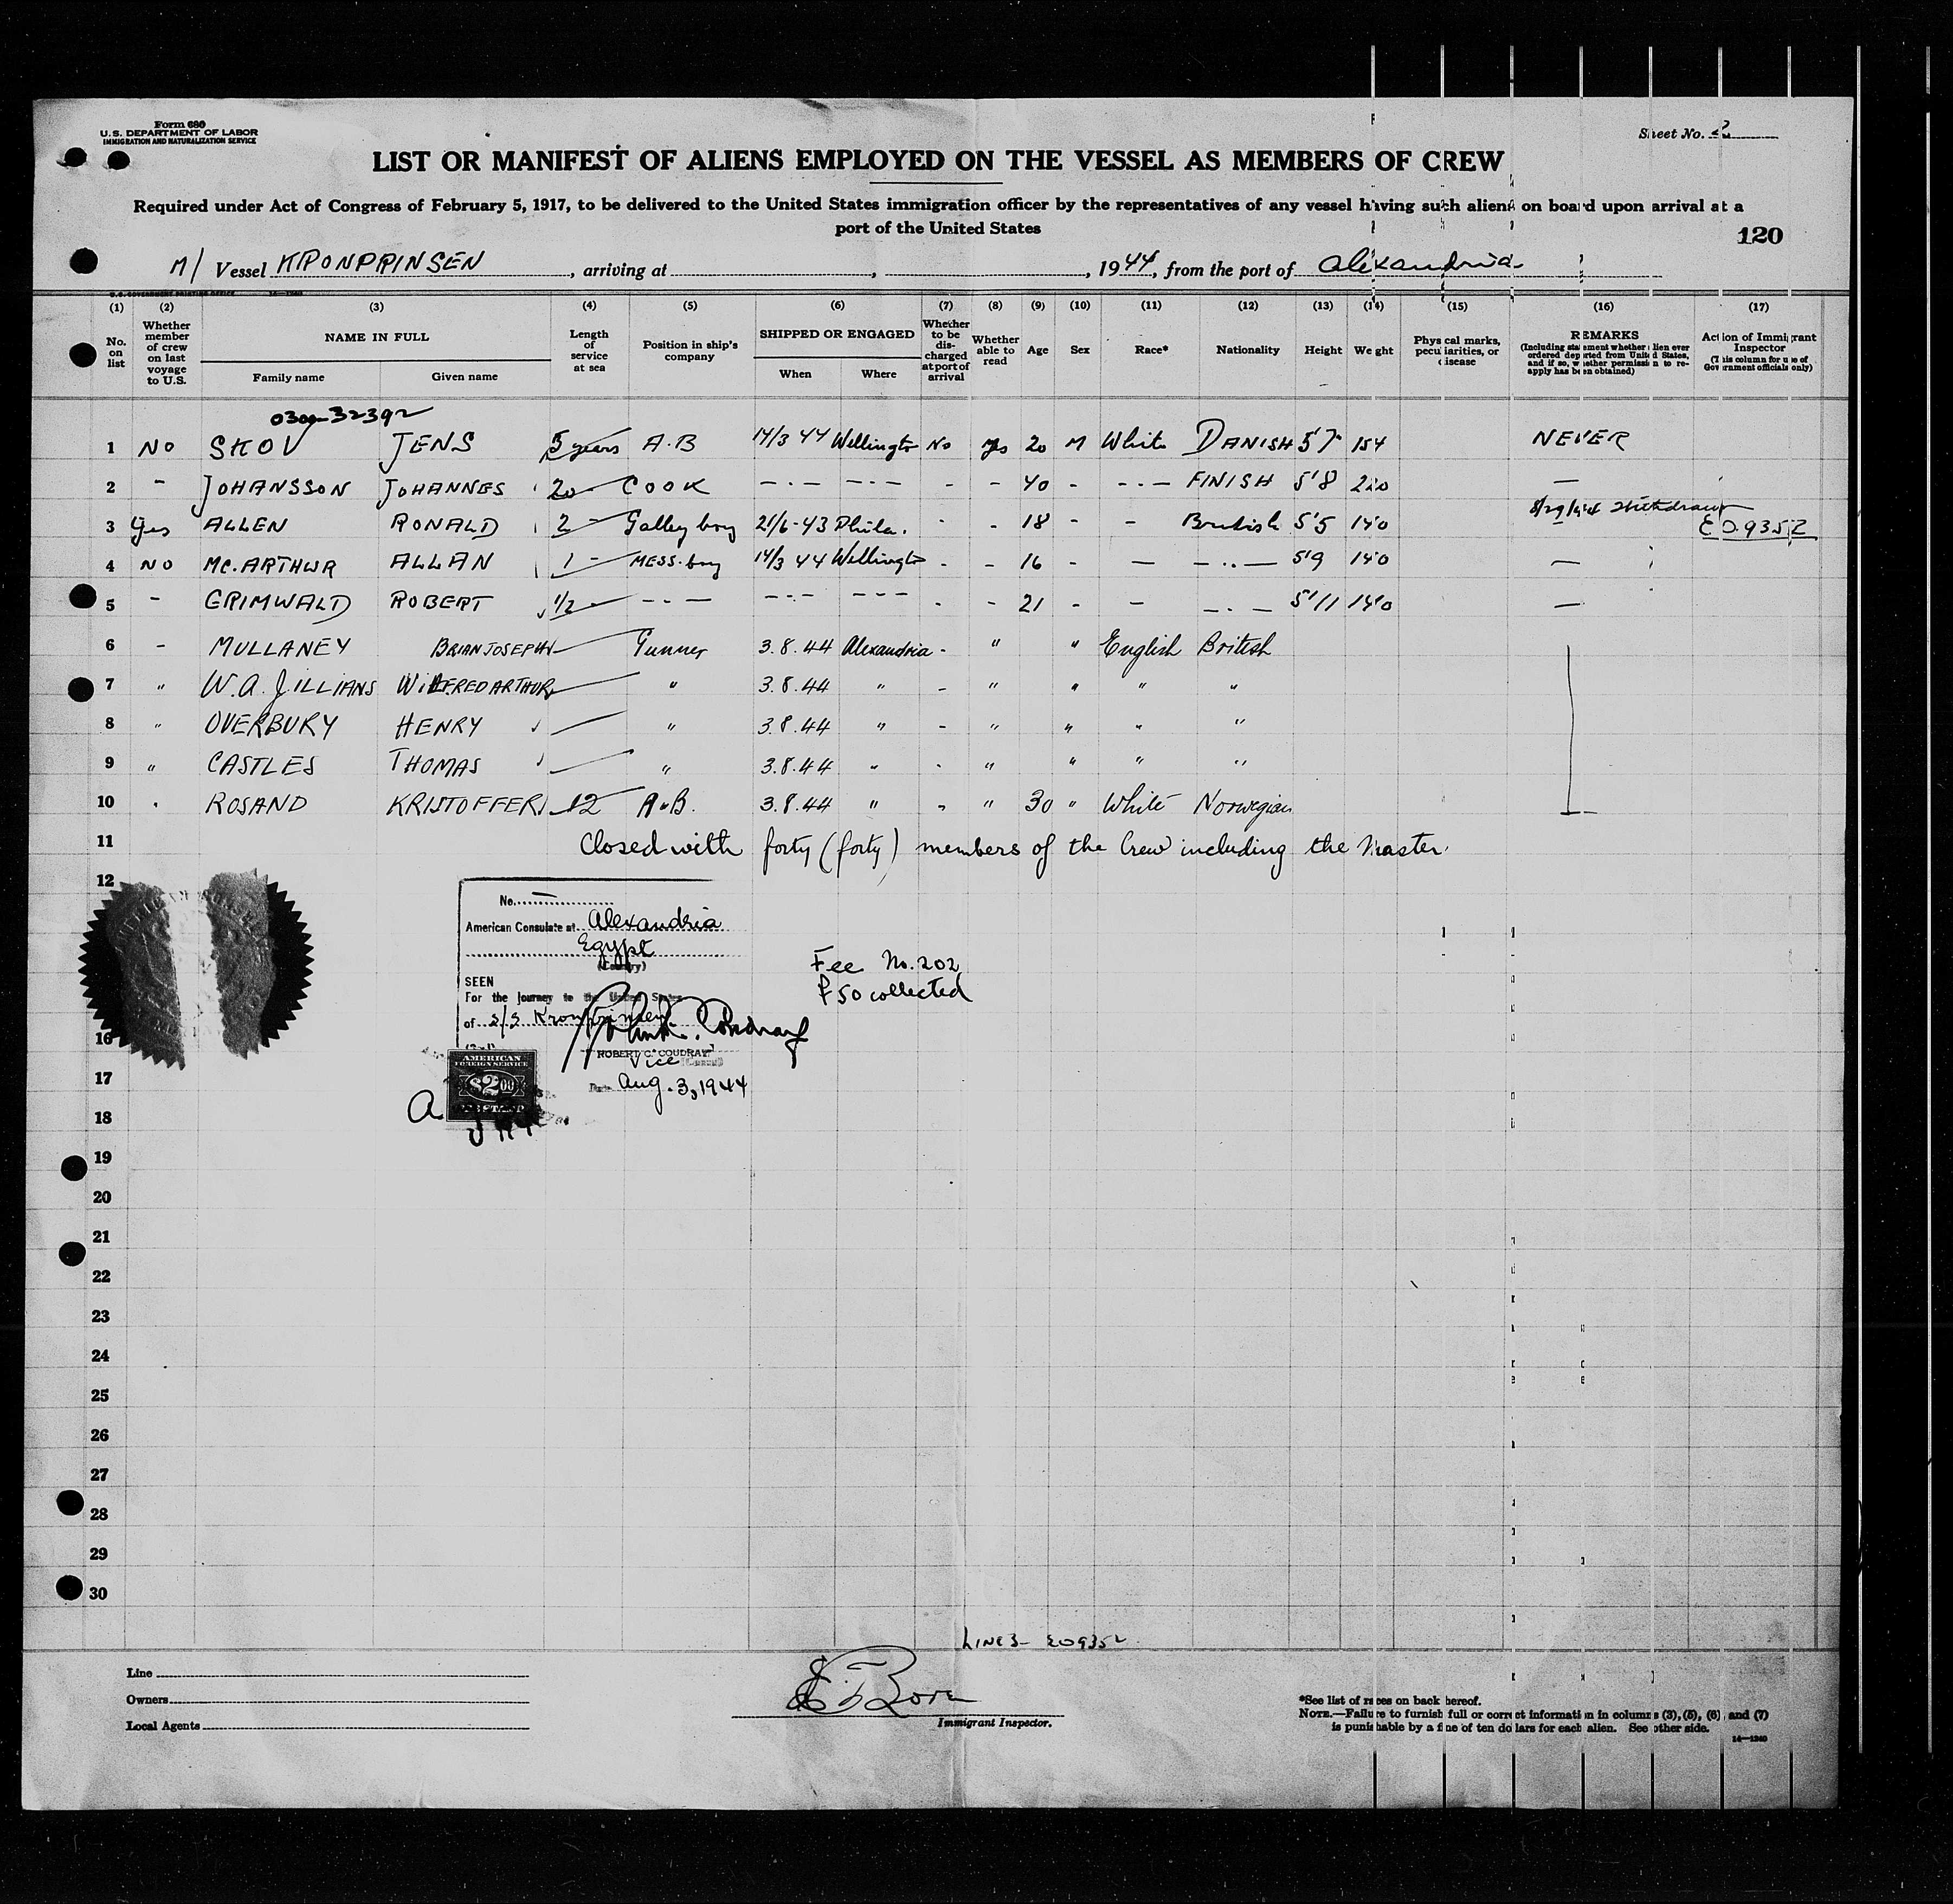 Form 680
U.S. DEPARTMENT OF LABOR
IMMIGRATION AND NATURALIZATION SERVICE
Sheet No. 2
LIST OR MANIFEST OF ALIENS EMPLOYED ON THE VESSEL AS MEMBERS OF CREW
Required under Act of Congress of February 5, 1917, to be delivered to the United States immigration officer by the representatives of any vessel having such aliens on board upon arrival at a
port of the United States
120
M/ Vessel KRONPRINSEN, arriving at , , 1944, from the port of Alexandria
U.S. GOVERNMENT PRINTING OFFICE 14—1240
(1) (2) (3) (4) (5) (6) (7) (8) (9) (10) (11) (12) (13) (14) (15) (16) (17)
No. on list
Whether member of crew on last voyage to U.S.
NAME IN FULL
Family name Given name
Length of service at sea
Position in ship's company
SHIPPED OR ENGAGED
When Where
Whether to be discharged at port of arrival
Whether able to read
Age
Sex
Race*
Nationality
Height
Weight
Physical marks, peculiarities, or disease
REMARKS
(Including statement whether alien ever ordered deported from United States, and if so, whether permission to reapply has been obtained)
Action of Immigrant Inspector
(This column for use of Government officials only)
0300-32392
1 NO SKOV JENS 5 years A.B 14/3 44 Wellington No yes 20 M White DANISH 5'7 154 NEVER
2 - JOHANSSON JOHANNES 20 - COOK -.- -.- - - 40 - -.- FINISH 5'8 220 —
3 Yes ALLEN RONALD 2 - Galley boy 21/6-43 Phila. - - 18 - - British 5'5 140 8/29/44 Withdrawn E09352
4 NO MC.ARTHUR ALLAN 1 - MESS.boy 14/3 44 Wellington - - 16 - — -..— 5'9 140 —
5 - GRIMWALD ROBERT 1/2 - -.- -.- --- - - 21 - - -.- 5'11 140 —
6 - MULLANEY BRIAN JOSEPH Gunner 3.8.44 Alexandria - " " English British
7 " W.A. JILLIANS WILFRED ARTHUR " 3.8.44 " - " " " "
8 " OVERBURY HENRY " 3.8.44 " - " " " "
9 " CASTLES THOMAS " 3.8.44 " - " " " "
10 " ROSAND KRISTOFFER 12 A.B. 3.8.44 " " " 30 " White Norwegian
11 Closed with forty (forty) members of the Crew including the Master.
12
No.
American Consulate at Alexandria
Egypt
(Country)
Fee No. 202
SEEN
$50 collected
For the journey to the United States
of S/S Kronprinsen
16
ROBERT C. COUDRAY
Vice Consul
AMERICAN
FOREIGN SERVICE
$2.00
FEE STAMP
17
Date Aug. 3, 1944
18
19
20
21
22
23
24
25
26
27
28
29
30
LINE 3- E09352
Line
Owners
Local Agents
Immigrant Inspector.
*See list of races on back hereof.
NOTE.—Failure to furnish full or correct information in columns (3), (5), (6) and (7)
is punishable by a fine of ten dollars for each alien. See other side.
14—1240